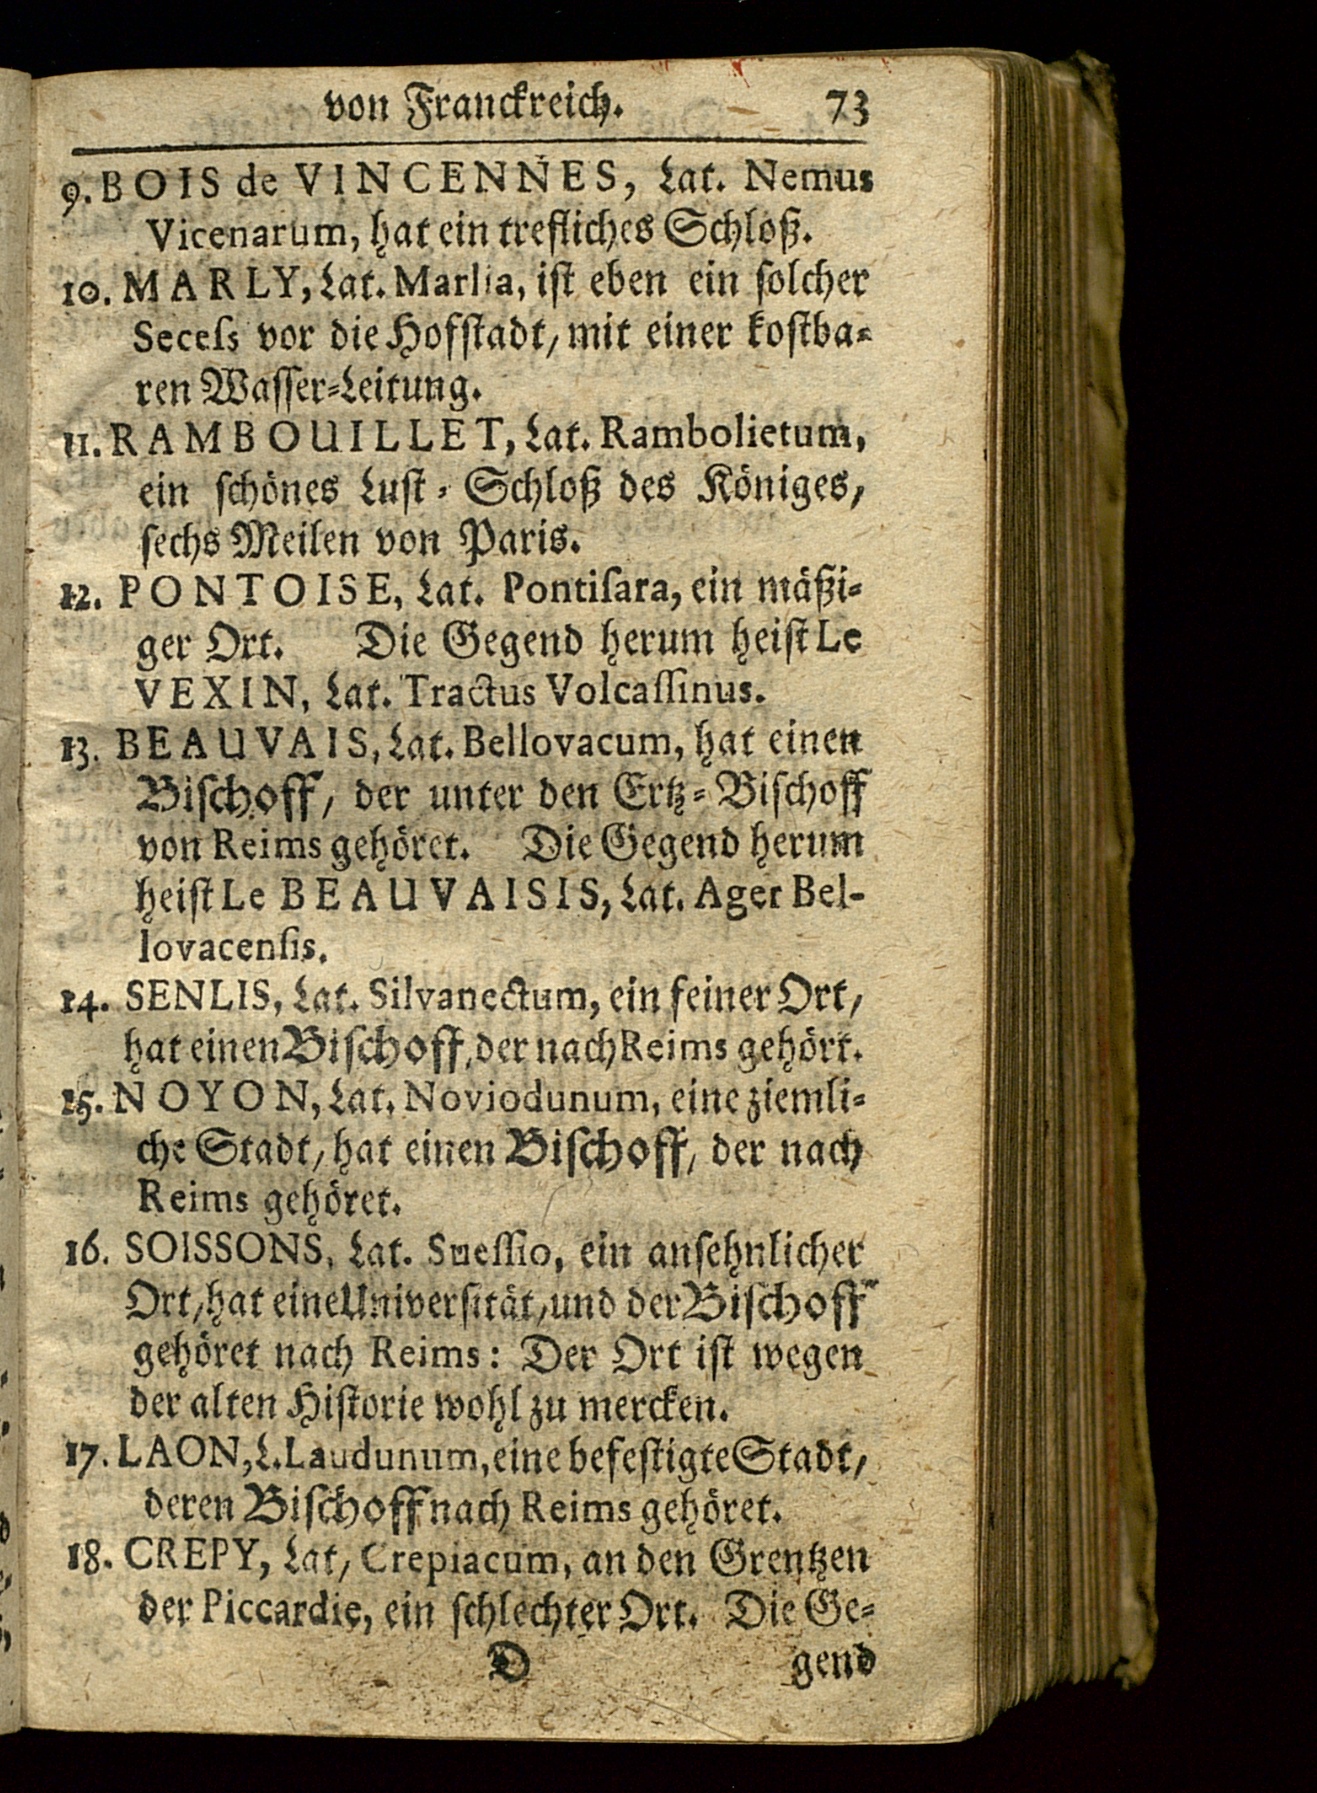 von Franckreich. 73
9. BOIS de VINCENNES, Lat. Nemus
Vicenarum, hat ein trefliches Schloß.
10. MARLY, Lat. Marlia, iſt eben ein ſolcher
Seceſs vor die Hofſtadt/ mit einer koſtba-
ren Waſſer-Leitung.
11. RAMBOUILLET, Lat. Rambolietum,
ein ſchönes Luſt-Schloß des Königes/
ſechs Meilen von Paris.
12. PONTOISE, Lat. Pontiſara, ein mäßi-
ger Ort. Die Gegend herum heiſt Le
VEXIN, Lat. Tractus Volcaſſinus.
13. BEAUVAIS, Lat. Bellovacum, hat einen
Biſchoff/ der unter den Ertz-Biſchoff
von Reims gehöret. Die Gegend herum
heiſt Le BEAUVAISIS, Lat. Ager Bel-
lovacenſis.
14. SENLIS, Lat. Silvanectum, ein feiner Ort/
hat einen Biſchoff, der nach Reims gehört.
15. NOYON, Lat. Noviodunum, eine ziemli-
che Stadt/ hat einen Biſchoff/ der nach
Reims gehöret.
16. SOISSONS, Lat. Sueſſio, ein anſehnlicher
Ort/ hat eine Univerſität/ und der Biſchoff
gehöret nach Reims: Der Ort iſt wegen
der alten Hiſtorie wohl zu mercken.
17. LAON, L. Laudunum, eine befeſtigte Stadt/
deren Biſchoff nach Reims gehöret.
18. CREPY, Lat/ Crepiacum, an den Grentzen
der Piccardie, ein ſchlechter Ort. Die Ge-
D gend